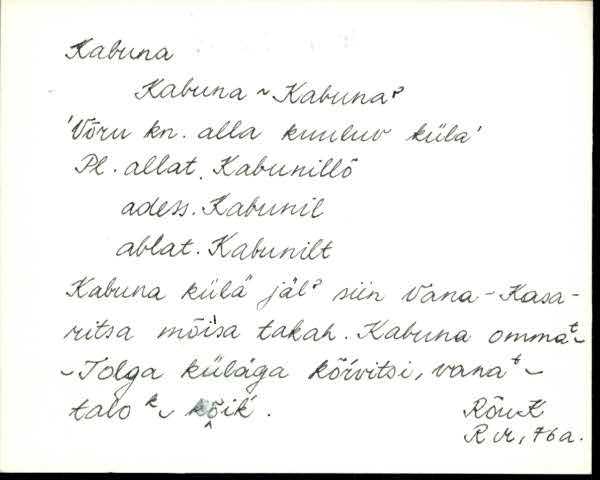 Kabuna
Kabuna ~ Kabunaˀ
'Võru kn. alla kuuluv küla'
Pl. allat. Kabunillõ
adess. Kabunil
ablat. Kabunilt
Kabuna külä jälˀ siin Vana-Kasa-
ritsa mõisa takah. Kabuna ommaᵗ~
~Tolga külàga kõrvitsi, vanaᵗ~
taloᵏ~ kõik.
RõuK
R VI, 76a.